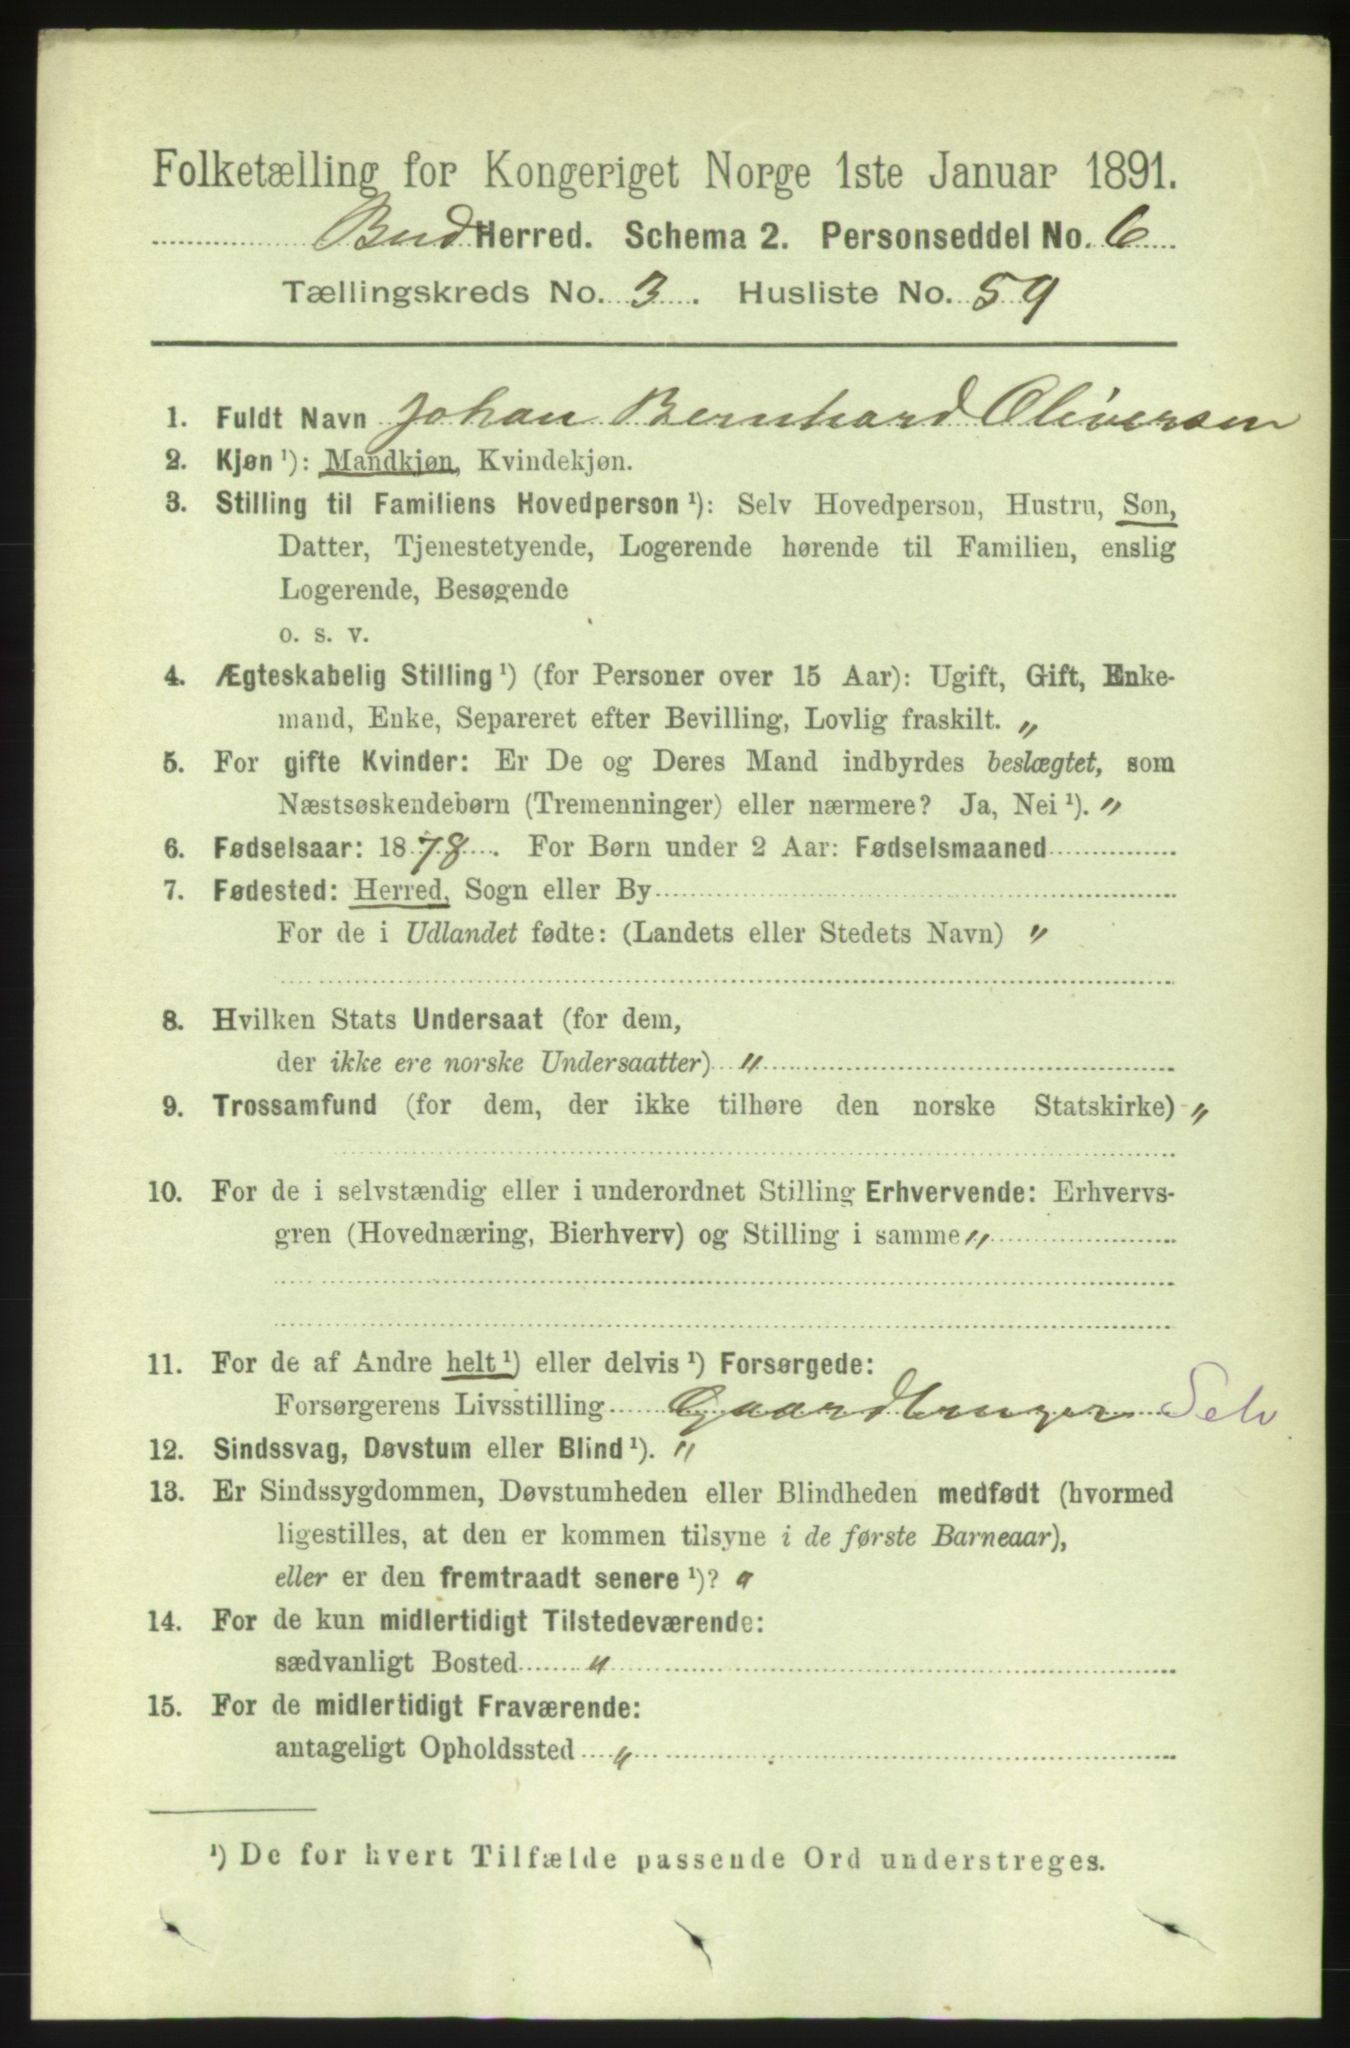 Folketælling for Kongeriget Norge 1ste Januar 1891.
Bud Herred. Schema 2. Personseddel No. 6
Tællingskreds No. 3. Husliste No. 59
1. Fuldt Navn Johan Bernhard Oliversen
2. Kjøn ¹): Mandkjøn, Kvindekjøn.
3. Stilling til Familiens Hovedperson ¹): Selv Hovedperson, Hustru, Søn,
Datter, Tjenestetyende, Logerende hørende til Familien, enslig
Logerende, Besøgende
o. s. v.
4. Ægteskabelig Stilling ¹) (for Personer over 15 Aar): Ugift, Gift, Enke-
mand, Enke, Separeret efter Bevilling, Lovlig fraskilt. "
5. For gifte Kvinder: Er De og Deres Mand indbyrdes beslægtet, som
Næstsøskendebørn (Tremenninger) eller nærmere? Ja, Nei ¹). "
6. Fødselsaar: 1878. For Børn under 2 Aar: Fødselsmaaned
7. Fødested: Herred, Sogn eller By
For de i Udlandet fødte: (Landets eller Stedets Navn) "
8. Hvilken Stats Undersaat (for dem,
der ikke ere norske Undersaatter) "
9. Trossamfund (for dem, der ikke tilhøre den norske Statskirke) "
10. For de i selvstændig eller i underordnet Stilling Erhvervende: Erhvervs-
gren (Hovednæring, Bierhverv) og Stilling i samme "
11. For de af Andre helt ¹) eller delvis ¹) Forsørgede:
Forsørgerens Livsstilling Gaardbruger Selv
12. Sindssvag, Døvstum eller Blind ¹). "
13. Er Sindssygdommen, Døvstumheden eller Blindheden medfødt (hvormed
ligestilles, at den er kommen tilsyne i de første Barneaar),
eller er den fremtraadt senere ¹)? "
14. For de kun midlertidigt Tilstedeværende:
sædvanligt Bosted "
15. For de midlertidigt Fraværende:
antageligt Opholdssted "
¹) De for hvert Tilfælde passende Ord understreges.